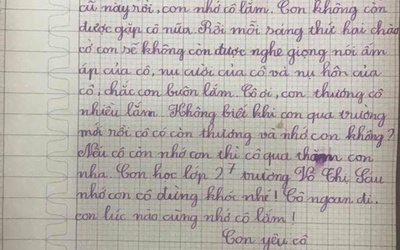 cũ này rồi, con nhớ cô lắm. Con không còn
được gặp cô nữa. Rồi mỗi sáng thứ hai chào
cờ con sẽ không còn được nghe giọng nói ấm
áp của cô, nụ cười của cô và nụ hôn của
cô, chắc con buồn lắm. Cô ơi, con thương cô
nhiều lắm. Không biết khi con qua trường
mới rồi cô có còn thương và nhớ con không?
Nếu cô còn nhớ con thì cô qua thăm con
nha. Con học lớp 2⁷ trường Võ Thị Sáu
nhớ con cô đừng khóc nhé! Cô ngoan đi.
con lúc nào cũng nhớ cô lắm!
Con yêu cô